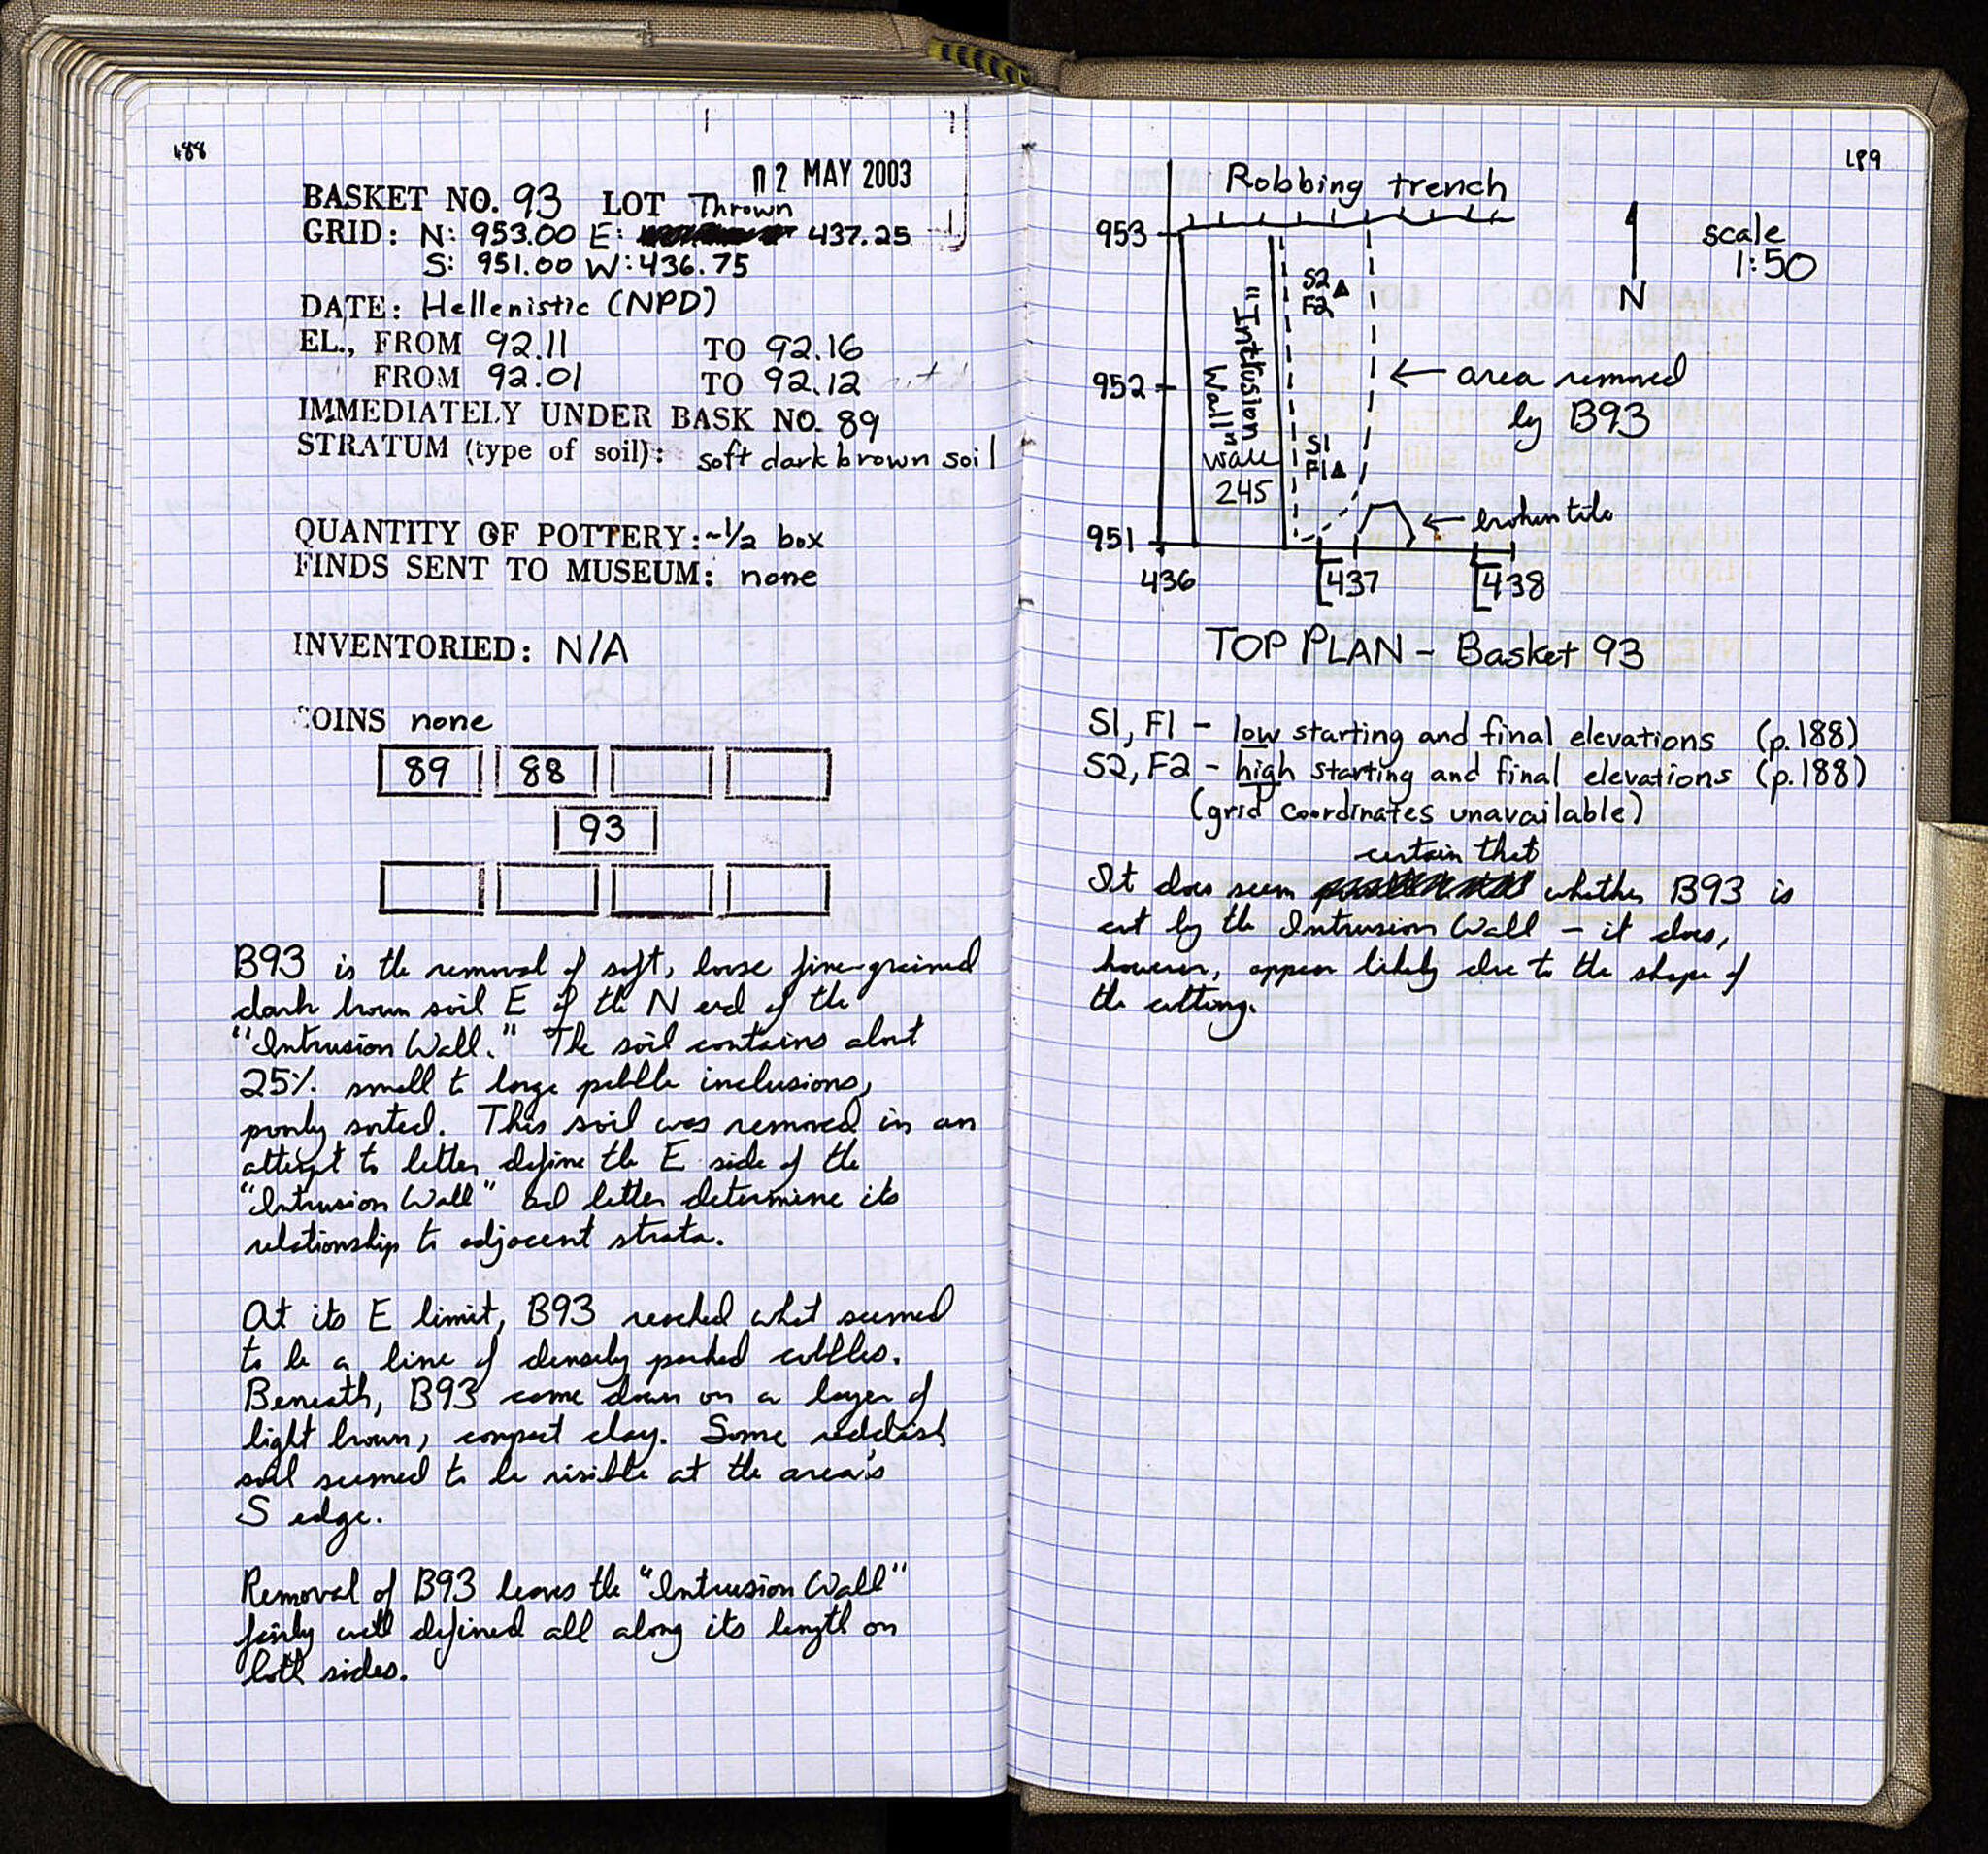 188
02 MAY 2003
BASKET NO. 93 LOT Thrown
GRID: N: 953.00 E: 437.25
S: 951.00 W: 436.75
DATE: Hellenistic (NPD)
EL., FROM 92.11 TO 92.16
FROM 92.01 TO 92.12
IMMEDIATELY UNDER BASK NO. 89
STRATUM (type of soil): soft dark brown soil
QUANTITY OF POTTERY: ~1/2 box
FINDS SENT TO MUSEUM: none
INVENTORIED: N/A
COINS none
89 88
93
B93 is the removal of soft, loose fine-grained
dark brown soil E of the N end of the
"Intrusion Wall." The soil contains about
25% small to large pebble inclusions,
poorly sorted. This soil was removed in an
attempt to better define the E side of the
"Intrusion Wall" and better determine its
relationship to adjacent strata.
At its E limit, B93 reached what seemed
to be a line of densely packed cobbles.
Beneath, B93 came down on a layer of
light brown, compact clay. Some reddish
soil seemed to be visible at the area's
S edge.
Removal of B93 leaves the "Intrusion Wall"
fairly well defined all along its length on
both sides.
189
Robbing trench
953
952
951
436
[437
[438
"Intrusion
Wall"
Wall
245
S2
F2
S1
F1
N
scale
1:50
← area removed
by B93
← broken tile
TOP PLAN - Basket 93
S1, F1 - low starting and final elevations (p.188)
S2, F2 - high starting and final elevations (p.188)
(grid coordinates unavailable)
certain that
It does seem whether B93 is
cut by the Intrusion Wall - it does,
however, appear likely due to the shape of
the cutting.